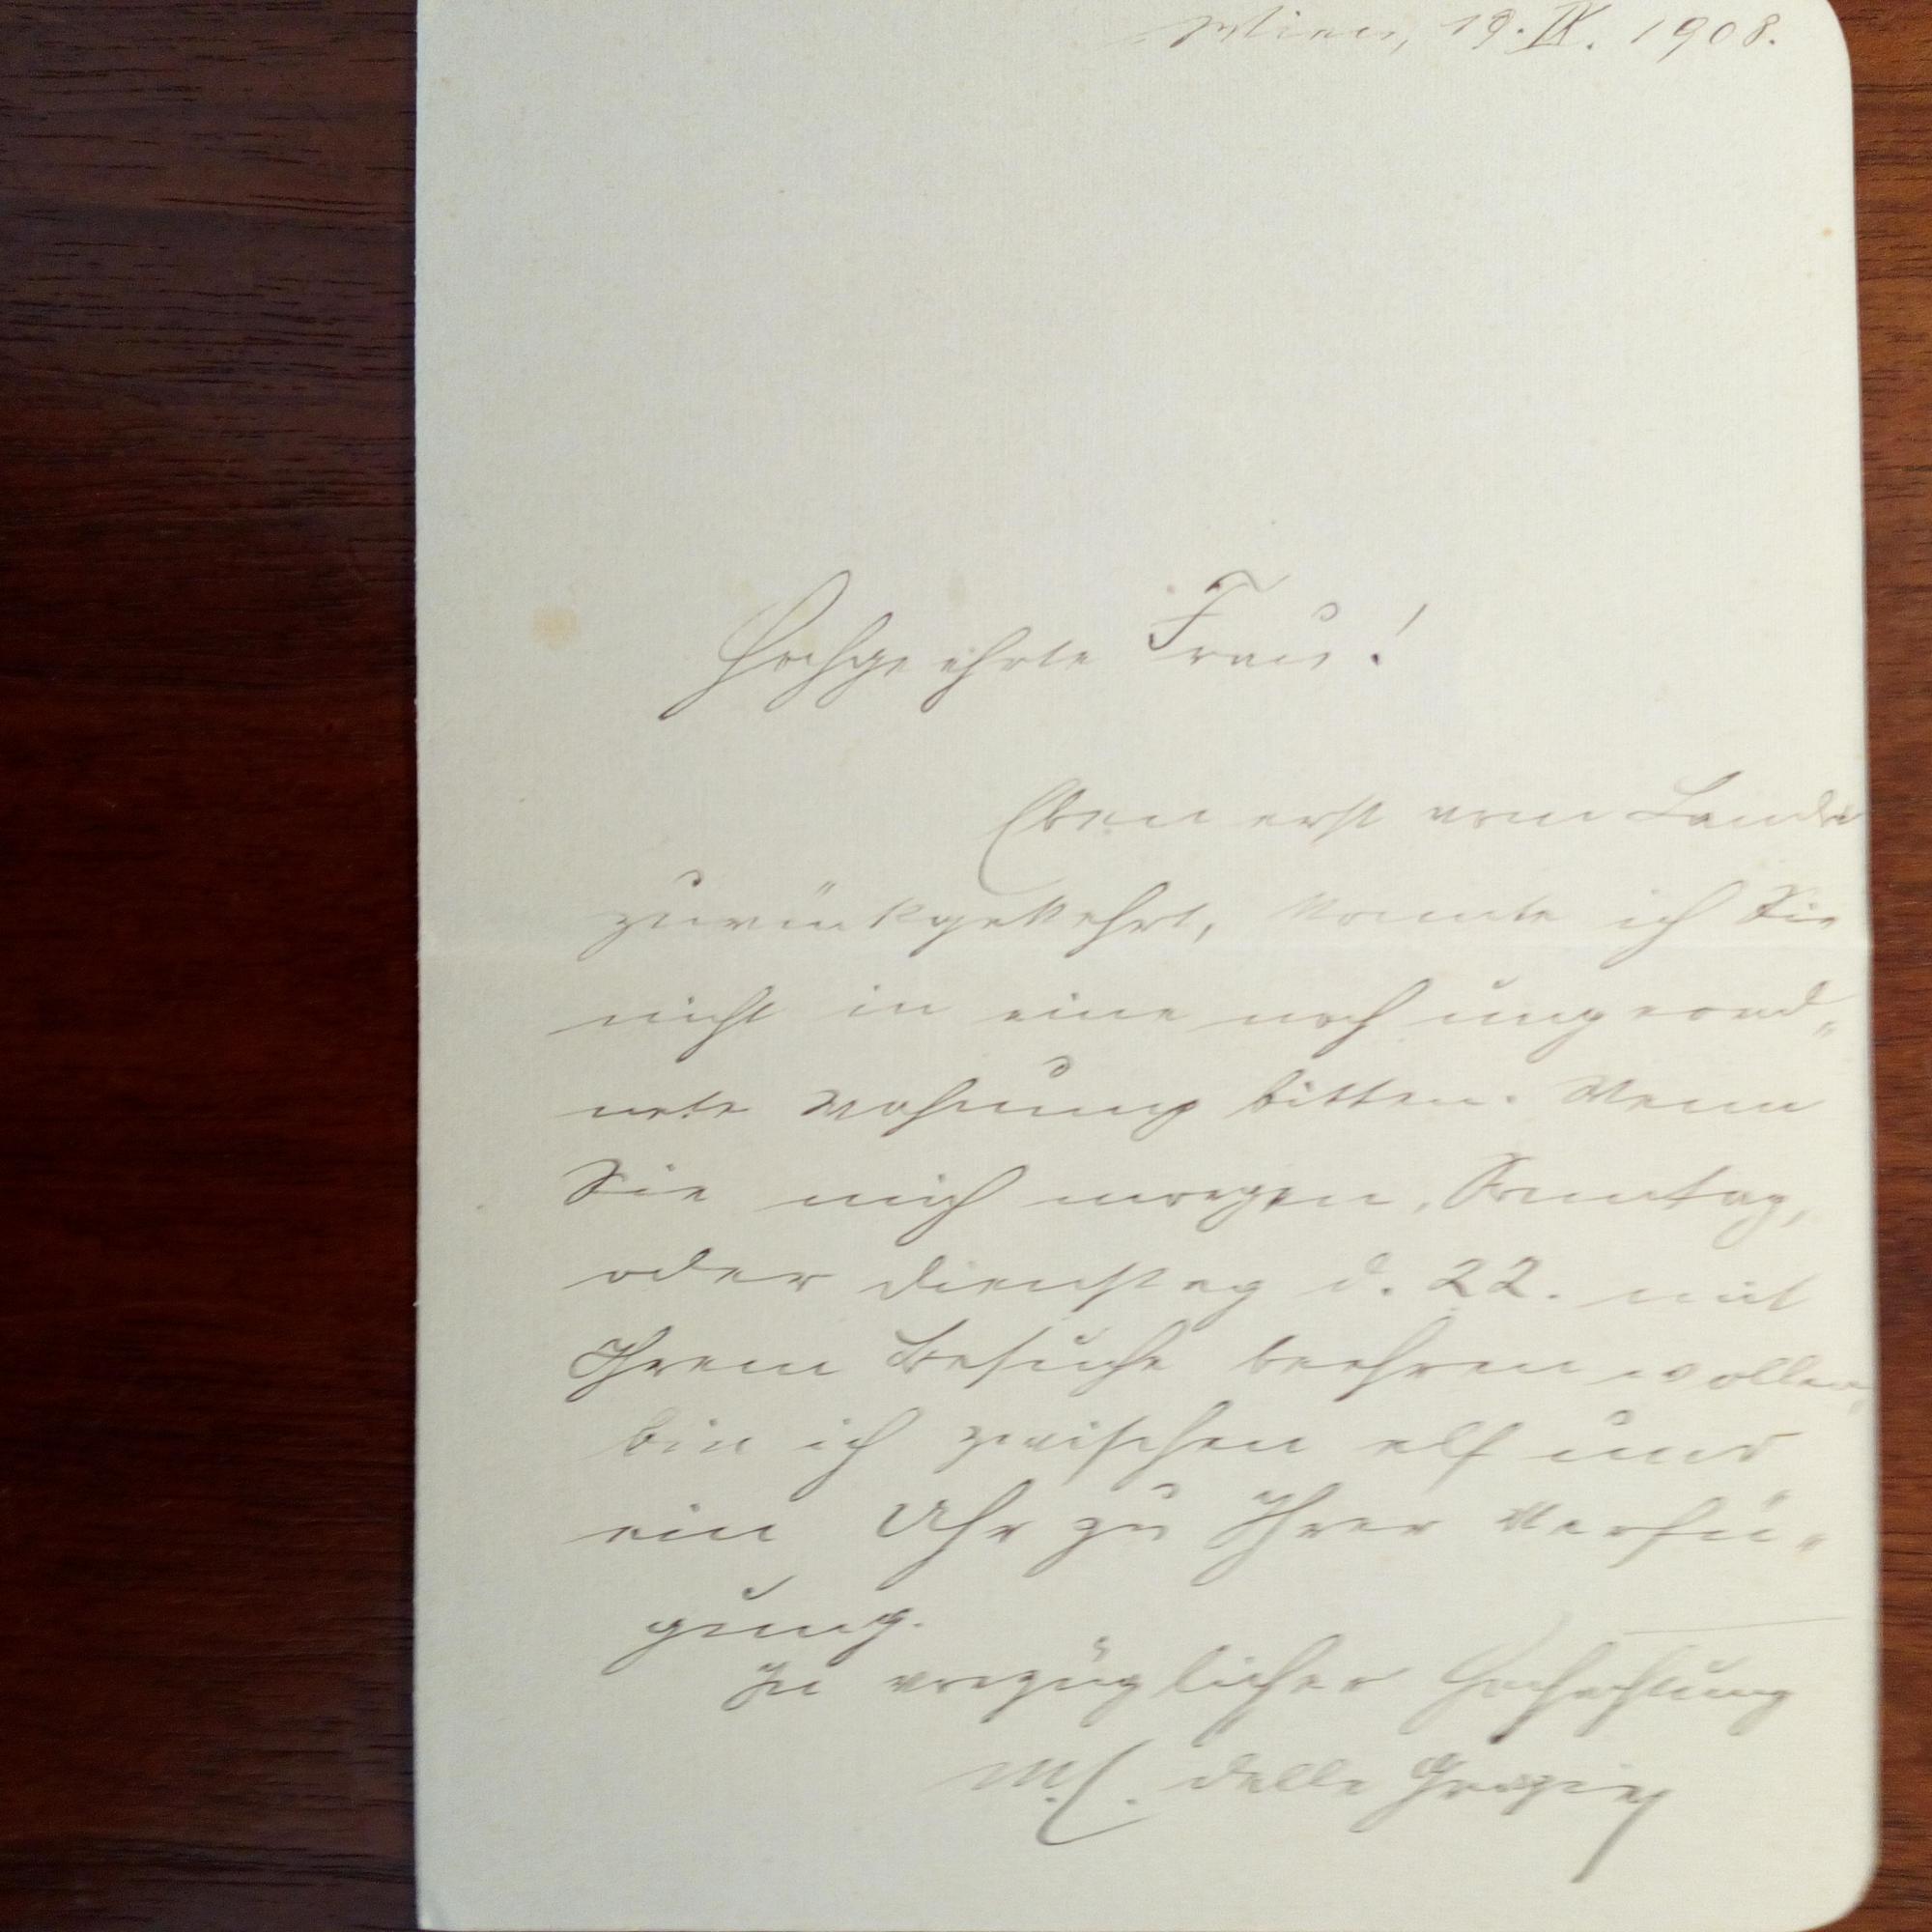 Wien, 19. IX. 1908.
Hochgeehrte Frau!
Eben erst vom Lande
zurückgekehrt, konnte ich Sie
nicht in eine noch ungeord„
nete Wohnung bitten. Wenn
Sie mich morgen, Sonntag,
oder Dienstag d. 22. mit
Ihrem Besuche beehren wollen,
bin ich zwischen elf und
ein Uhr zu Ihrer Verfü„
gung.
In vorzüglicher Hochachtung
M. E. delle Grazie